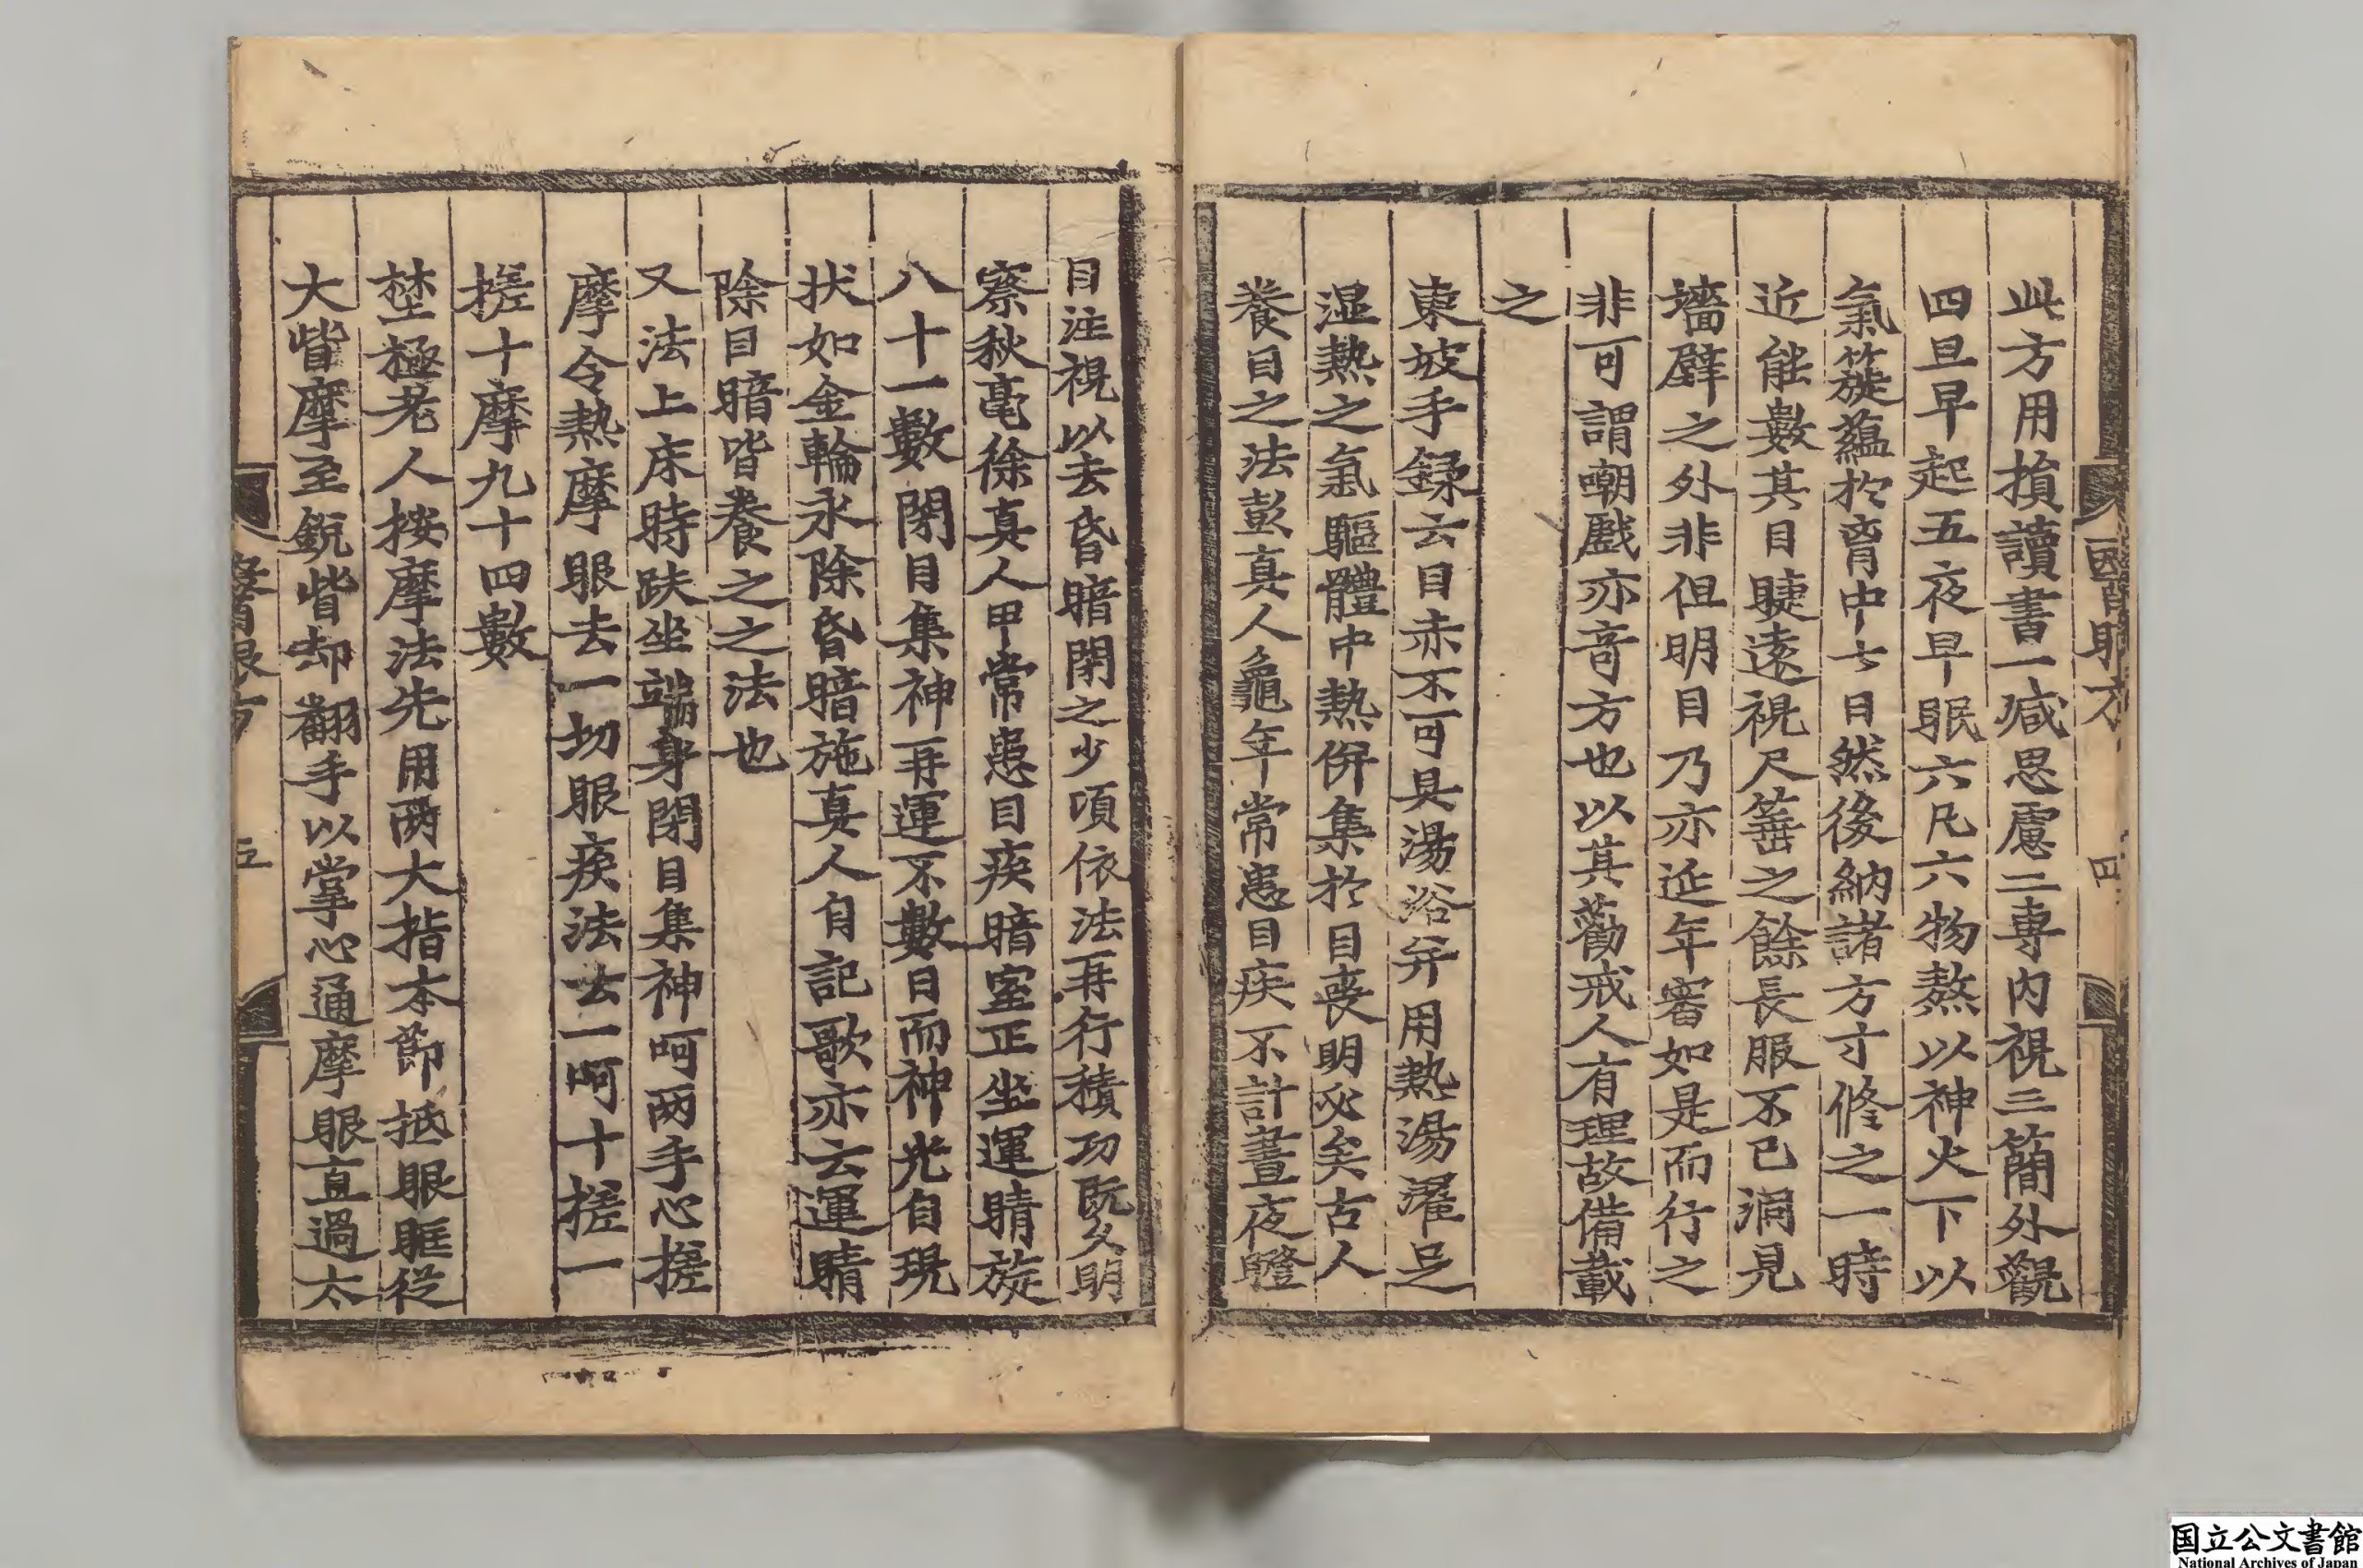 醫眼方
四
此方用損讀書一减思慮二專内視三簡外觀
四旦早起五夜早眠六凢六物熬以神火下以
氣簁蘊於胷中七日然後納諸方寸修之一時
近能數其目睫遠視尺箠之餘長服不已洞見
墻壁之外非但明目乃亦延年審如是而行之
非可謂嘲戲亦竒方也以其勸戒人有理故備載
之
東坡手録云目赤不可具湯浴并用熱湯濯足
湿熱之氣驅體中熱併集於目喪明必矣古人
養目之法彭真人龜年常患目疾不計晝夜瞪
目注視以去昏暗閉之少項依法再行積功既久明
察秋毫徐真人甲常患目疾暗室正坐運睛旋
八十一數閉目集神再運不數日而神光自現
状如金輪永除昏暗施真人自記歌亦云運睛
除目暗皆養之之法也
又法上床時趺坐端身閉目集神呵两手心搓
摩令熱摩眼去一切眼疾法去一呵十搓一
搓十摩九十四數
埜極老人按摩法先用兩大指本節抵眼眶從
大眥摩至銳眥却翻手以掌心通摩眼直過太
醫眼方
五
国立公文書館
National Archives of Japan